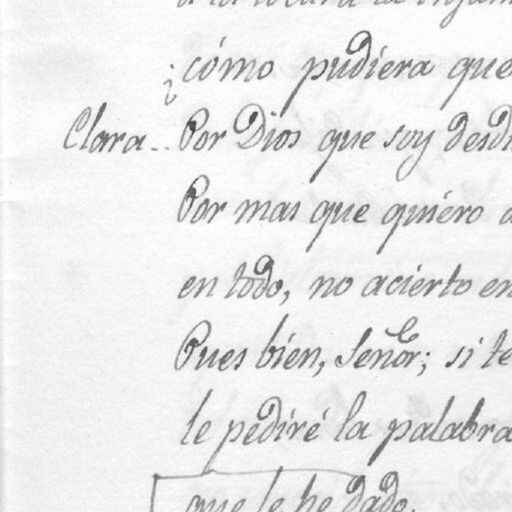 á la locura la
¿cómo pudiera que
Clara.. Por Dios que soy
Por mas que quiero
en todo, no acierto en
Pues bien, Señor; si te
le pediré la palabra
que le he dado.